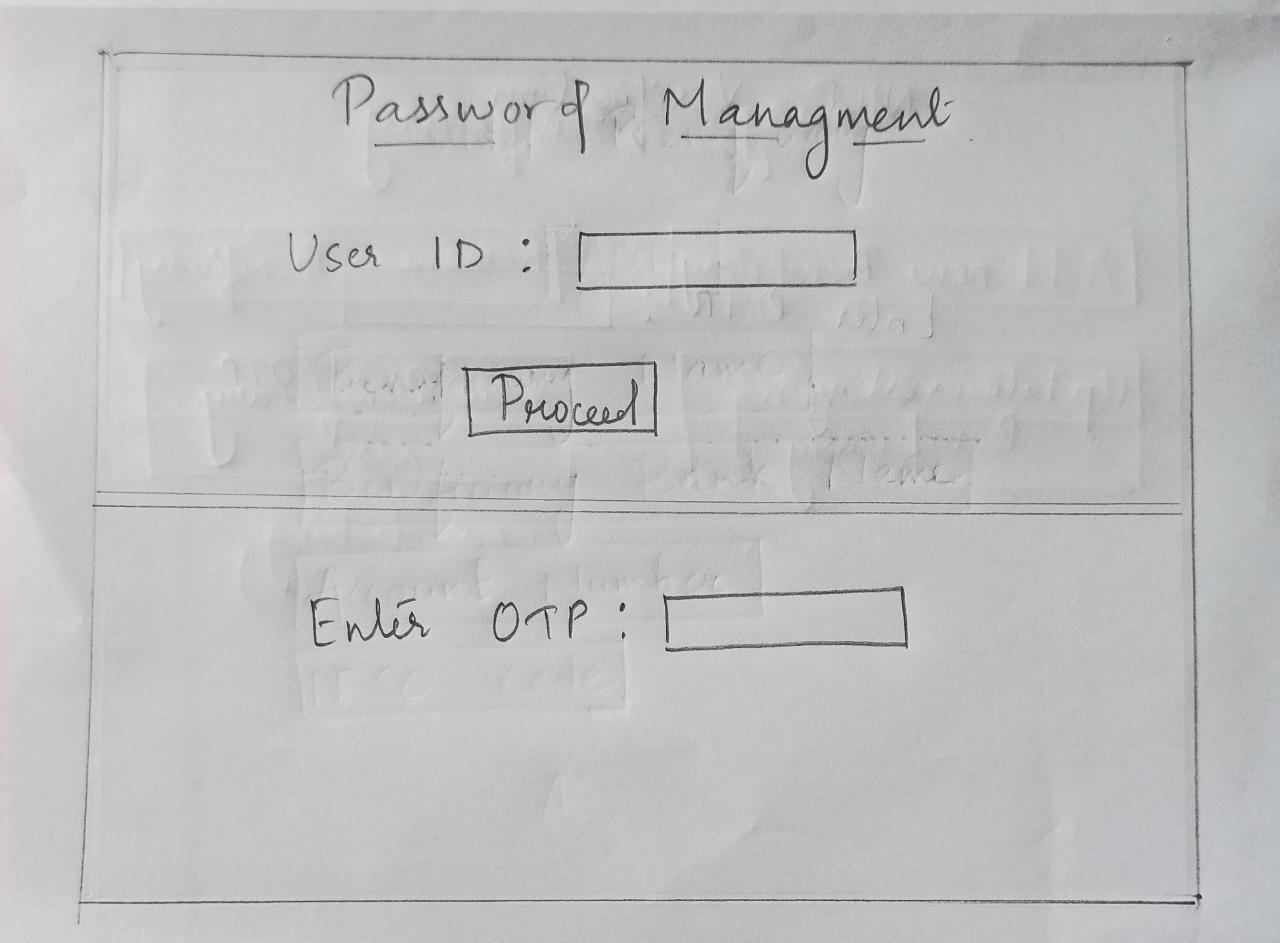 Password Managment
User ID :
Proceed
Enter OTP :